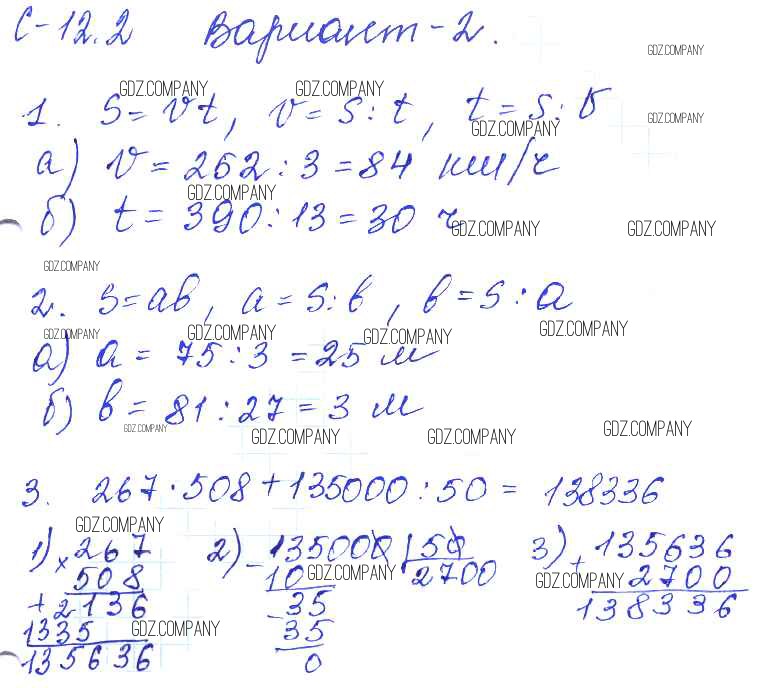 С-12.2 Вариант-2.
GDZ.COMPANY
GDZ.COMPANY GDZ.COMPANY
1. S = vt, v = S : t, t = S : v
GDZ.COMPANY
GDZ.COMPANY
а) v = 262 : 3 = 84 км/ч
GDZ.COMPANY
б) t = 390 : 13 = 30 ч
GDZ.COMPANY GDZ.COMPANY
GDZ.COMPANY
2. S = ab, a = S : b, b = S : a
GDZ.COMPANY GDZ.COMPANY GDZ.COMPANY GDZ.COMPANY
а) a = 75 : 3 = 25 м
б) b = 81 : 27 = 3 м
GDZ.COMPANY GDZ.COMPANY GDZ.COMPANY GDZ.COMPANY
3. 267 · 508 + 135000 : 50 = 138336
GDZ.COMPANY
1) × 267 2) - 135000 | 50 3) + 135636
508 10 GDZ.COMPANY 2700 GDZ.COMPANY 2700
+ 2136 - 35 138336
1335 GDZ.COMPANY 35
135636 0